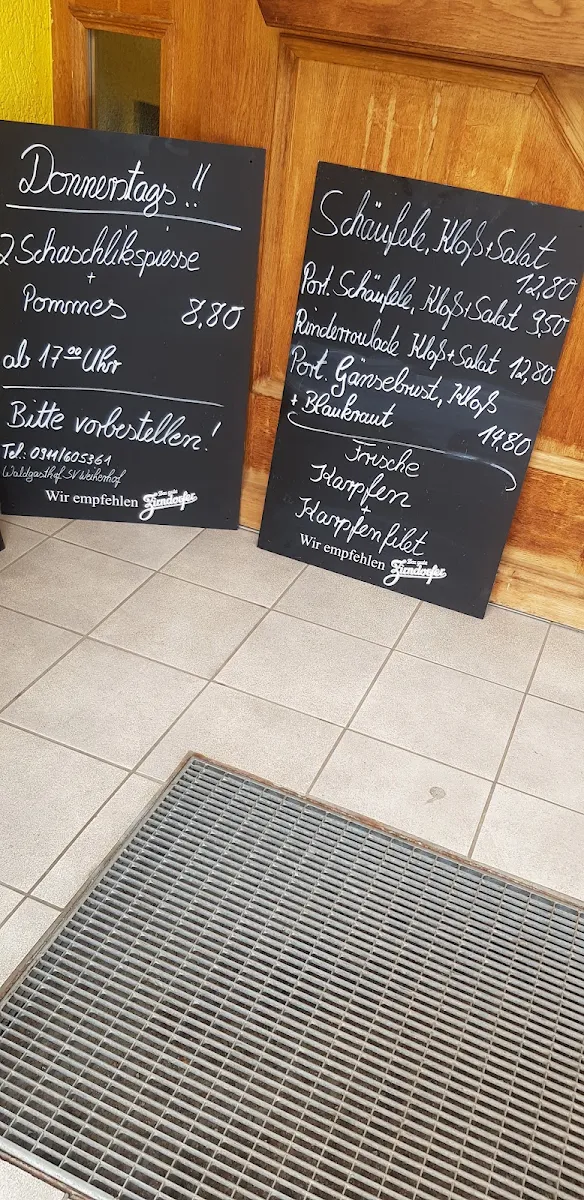 Donnerstags!!
2 Schaschlikspiesse
+
Pommes 8,80
ab 17⁰⁰ Uhr
Bitte vorbestellen!
Tel: 0911/605361
Waldgasthof SV Weiherhof
Wir empfehlen Zirndorfer
Schäufele, Kloß+Salat
12,80
Port. Schäufele, Kloß+Salat 9,50
Rinderroulade Kloß+Salat 12,80
Port. Gänsebrust, Kloß
+ Blaukraut 14,80
Frische
Karpfen
+
Karpfenfilet
Wir empfehlen Zirndorfer